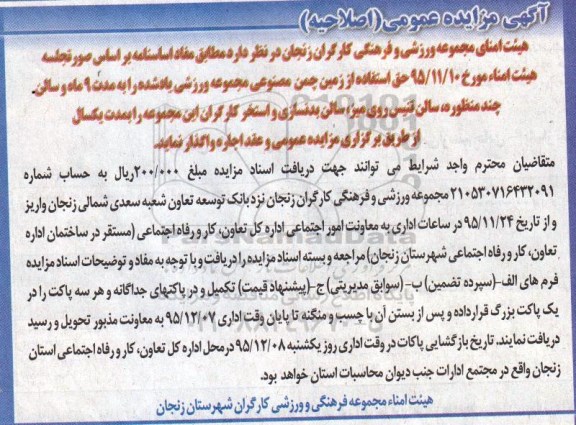 آگهی مزایده عمومی (اصلاحیه)
هیئت امنای مجموعه ورزشی و فرهنگی کارگران زنجان در نظر دارد مطابق مفاد اساسنامه بر اساس صورتجلسه
هیئت امناء مورخ ۹۵/۱۱/۱۰ حق استفاده از زمین چمن مصنوعی مجموعه ورزشی یادشده را به مدت ۹ ماه و سالن
چند منظوره، سالن تنیس روی میز، سالن بدنسازی و استخر کارگران این مجموعه را بمدت یکسال
از طریق برگزاری مزایده عمومی و عقد اجاره واگذار نماید.
متقاضیان محترم واجد شرایط می توانند جهت دریافت اسناد مزایده مبلغ ۲۰۰/۰۰۰ ریال به حساب شماره
۲۱۰۵۳۰۷۱۶۴۳۲۰۹۱ مجموعه ورزشی و فرهنگی کارگران زنجان نزد بانک توسعه تعاون شعبه سعدی شمالی زنجان واریز
و از تاریخ ۹۵/۱۱/۲۴ در ساعات اداری به معاونت امور اجتماعی اداره کل تعاون، کار و رفاه اجتماعی (مستقر در ساختمان اداره
تعاون، کار و رفاه اجتماعی شهرستان زنجان) مراجعه و بسته اسناد مزایده را دریافت و با توجه به مفاد و توضیحات اسناد مزایده
فرم های الف-(سپرده تضمین) ب-(سوابق مدیریتی) ج-(پیشنهاد قیمت) تکمیل و در پاکتهای جداگانه و هر سه پاکت را در
یک پاکت بزرگ قرارداده و پس از بستن آن با چسب و منگنه تا پایان وقت اداری ۹۵/۱۲/۰۷ به معاونت مذبور تحویل و رسید
دریافت نمایند. تاریخ بازگشایی پاکات در وقت اداری روز یکشنبه ۹۵/۱۲/۰۸ در محل اداره کل تعاون، کار و رفاه اجتماعی استان
زنجان واقع در مجتمع ادارات جنب دیوان محاسبات استان خواهد بود.
هیئت امناء مجموعه فرهنگی و ورزشی کارگران شهرستان زنجان